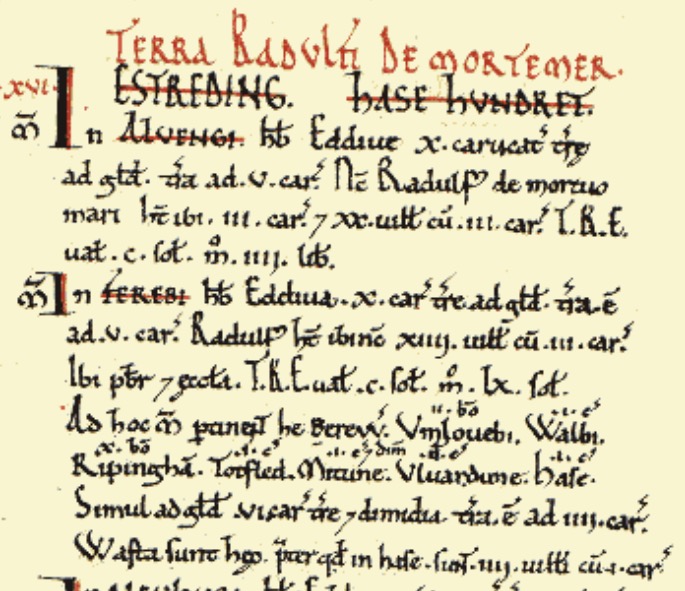 TERRA RADULFI DE MORTEMER.
.XVI. ESTREDING. HASE HUNDRET.
M̃ In ALVENGI. hb̃ Eddiue x. carucat̃ tr̃ę
ad gld̃. tr̃a ad .v. car̃. Nc̃ Radulf de mortuo
mari ht̃ ibi .iii. car̃. ⁊ xx. uilt̃ cũ .iii. car̃. T.R.E.
uat̃ .c. sot̃. m̊ .iiii. lib̃.
M̃ In FERESBI hb̃ Eddiua .x. car̃ tr̃e ad gld̃. tr̃a .ẽ
ad .v. car̃. Radulf ht̃ ibi nc̃ xiiii. uilt̃ cũ .iii. car̃.
Ibi pb̃r ⁊ ęccta. T.R.E. uat̃ .c. sot̃. m̊ .lx. sot̃.
Ad hoc m̃ ptineñt hę Berew̃. Vmlouebi. Walbi.
Ripinghã. Totfled. Mitune. Vluardune. hase.
Simul ad gld̃ .vi. car̃ tr̃e ⁊ dimidia. tr̃a .ẽ ad .iiii. car̃.
Wasta sunt hęc. p̃ter qd̃ in hase. suñt .iiii. uilli cũ .i. car̃.